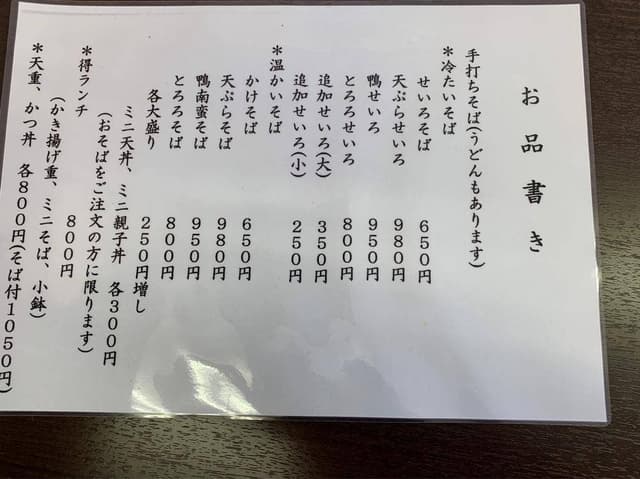 お品書き
手打ちそば(うどんもあります)
＊冷たいそば
せいろそば ６５０円
天ぷらせいろ ９８０円
鴨せいろ ９５０円
とろろせいろ ８００円
追加せいろ(大) ３５０円
追加せいろ(小) ２５０円
＊温かいそば
かけそば ６５０円
天ぷらそば ９８０円
鴨南蛮そば ９５０円
とろろそば ８００円
各大盛り ２５０円増し
ミニ天丼、ミニ親子丼 各３００円
(おそばをご注文の方に限ります)
＊得ランチ ８００円
(かき揚げ重、ミニそば、小鉢)
＊天重、かつ丼 各８００円(そば付１０５０円)